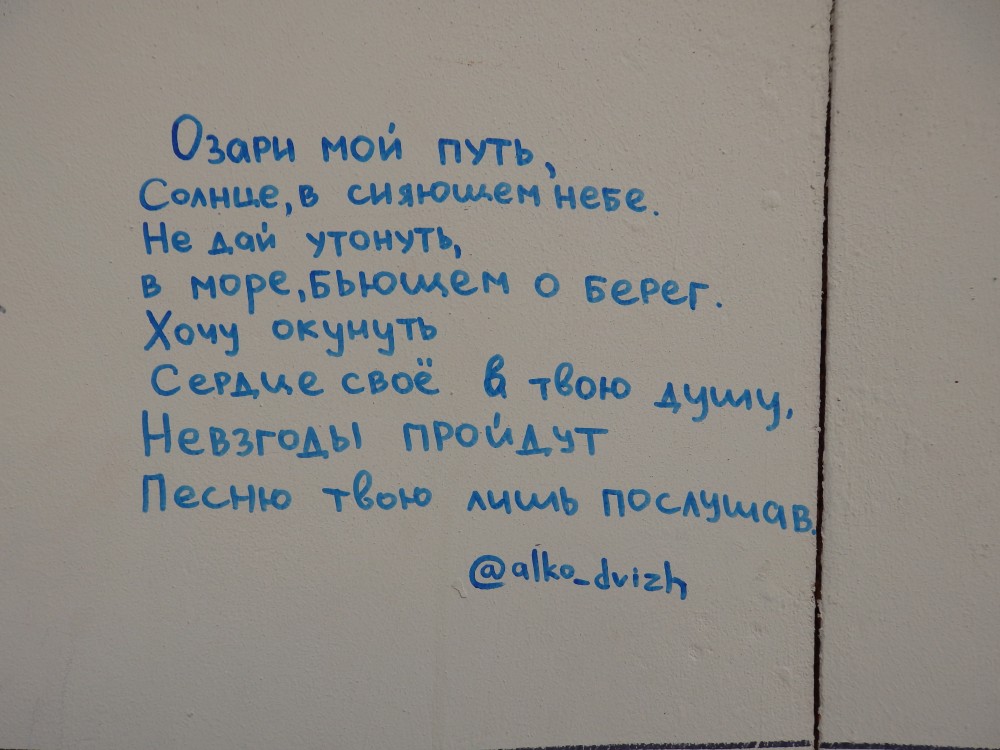 Озари мой путь,
Солнце, в сияющем небе.
Не дай утонуть,
в море, бьющем о берег.
Хочу окунуть
Сердце своё в твою душу,
Невзгоды пройдут
Песню твою лишь послушав.
@alko_dvizh